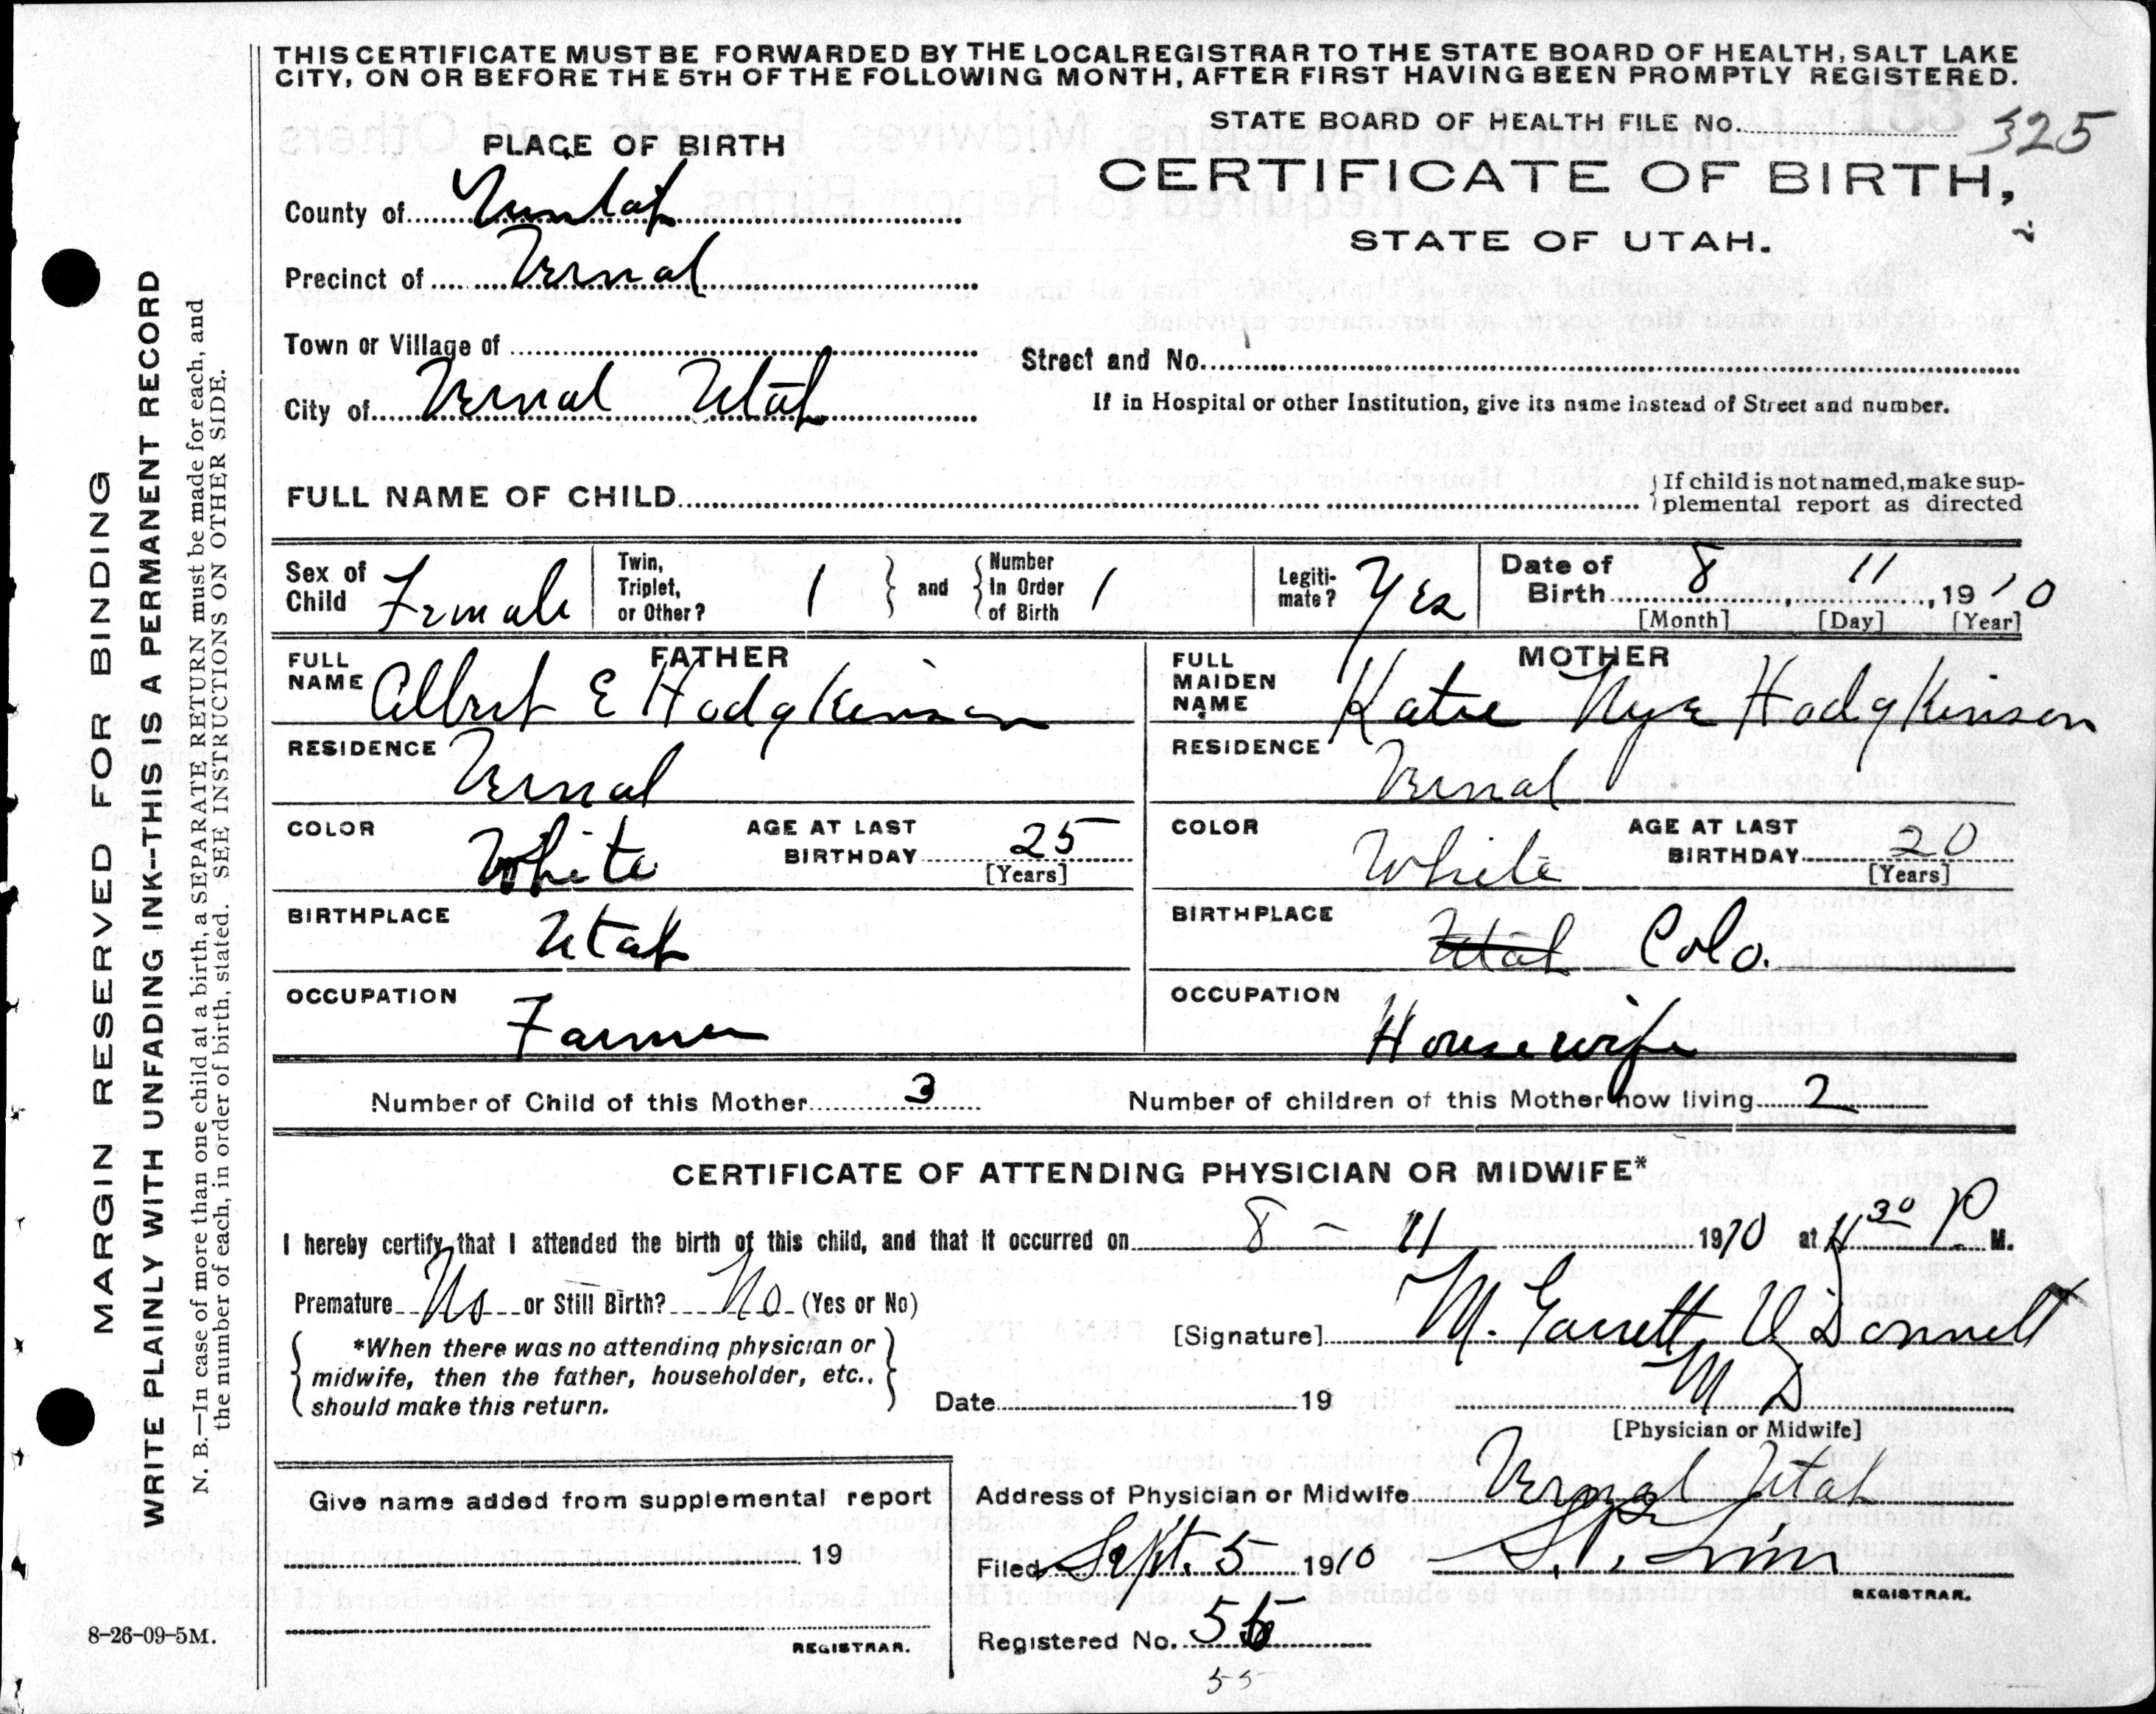 THIS CERTIFICATE MUST BE FORWARDED BY THE LOCAL REGISTRAR TO THE STATE BOARD OF HEALTH, SALT LAKE
CITY, ON OR BEFORE THE 5TH OF THE FOLLOWING MONTH, AFTER FIRST HAVING BEEN PROMPTLY REGISTERED.
STATE BOARD OF HEALTH FILE No. 325
PLACE OF BIRTH
CERTIFICATE OF BIRTH,
County of
STATE OF UTAH.
Precinct of Vernal
Town or Village of
Street and No.
City of Vernal Utah
If in Hospital or other Institution, give its name instead of Street and number.
FULL NAME OF CHILD
If child is not named, make sup-
plemental report as directed
Sex of Child Female
Twin, Triplet, or Other? 1 and Number in Order of Birth 1
Legiti-mate? Yes
Date of Birth 8 11, 1910
[Month] [Day] [Year]
FATHER
FULL NAME Albert E Hodgkinson
RESIDENCE Vernal
COLOR White AGE AT LAST BIRTHDAY 25 [Years]
BIRTHPLACE Utah
OCCUPATION Farmer
MOTHER
FULL MAIDEN NAME Katie Nye Hodgkinson
RESIDENCE Vernal
COLOR White AGE AT LAST BIRTHDAY 20 [Years]
BIRTHPLACE Utah Colo.
OCCUPATION Housewife
Number of Child of this Mother 3 Number of children of this Mother now living 2
CERTIFICATE OF ATTENDING PHYSICIAN OR MIDWIFE*
I hereby certify that I attended the birth of this child, and that it occurred on 8 - 11 1910 at 11 30 P M.
Premature No or Still Birth? No (Yes or No)
*When there was no attending physician or
midwife, then the father, householder, etc.,
should make this return.
[Signature] M. Garrett O'Donnell
M D
Date 19
[Physician or Midwife]
Give name added from supplemental report
19
REGISTRAR.
Address of Physician or Midwife Vernal Utah
Filed Sept. 5 1910
REGISTRAR.
Registered No. 55
55
8-26-09-5M.
MARGIN RESERVED FOR BINDING
WRITE PLAINLY WITH UNFADING INK--THIS IS A PERMANENT RECORD
N. B.—In case of more than one child at a birth, a SEPARATE RETURN must be made for each, and
the number of each, in order of birth, stated. SEE INSTRUCTIONS ON OTHER SIDE.